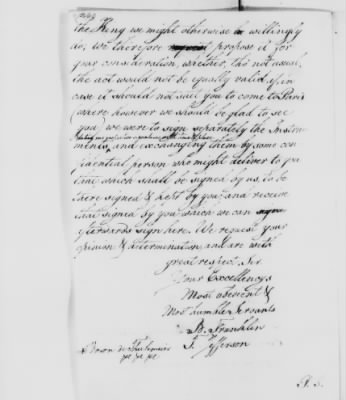 the King we might otherwise be willingly
do, we therefore propose it for
your consideration, whether, tho' not usual,
the act would not be equally valid if, in
case it should not suit you to come to Paris
(where however we should be glad to see
you) we were to sign separately the Instru-
ments, and exchanging them by some con
fidential person who might deliver to you
that which shall be signed by us, to be
there signed & kept by you, and receive
that signed by you which we can
afterwards sign here. We request your
opinion & determination, and are with
great respect, Sir
Your Excellency's
Most obedient &
Most humble Servants
B. Franklin
T. Jefferson
Baron de Thulemeier
P. S.